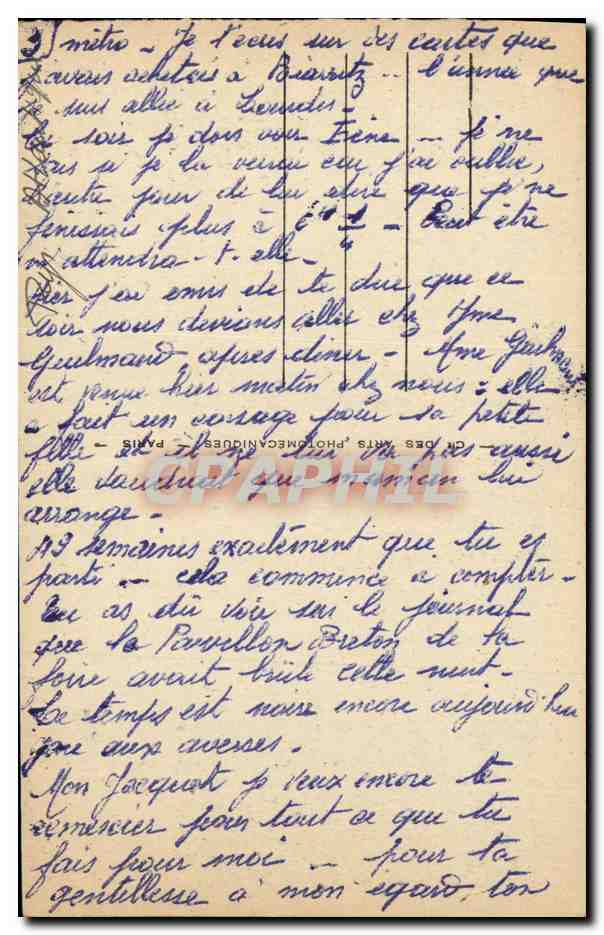 3) métro _ Je t'écris sur des cartes que
j'avais acheté à Biarritz .. l'année que
je suis allée à Lourdes _
Ce soir je dois voir Irène _ Je ne
sais si je la verrai car j'ai oublié,
pour de lui dire que je ne
finissais plus à 6h 1/4 _ Peut être
m'attendra-t-elle _
hier j'ai omis de te dire que ce
soir nous devions aller chez Mme
Guilmard après diner _ Mme Guilmard
est venue hier matin chez nous : elle
a fait un corsage pour sa petite
fille et il ne lui va pas aussi
elle voudrait que maman lui
arrange _
49 semaines exactement que tu es
parti _ cela commence à compter _
Tu as dû voir sur le journal
que le Pavillon Breton de la
foire avait brûlé cette nuit _
Le temps est noire encore aujourd'hui
aux averses _
Mon Jacquot je veux encore te
remercier pour tout ce que tu
fais pour moi _ pour ta
gentillesse à mon égard, ton
Cie DES ARTS PHOTOMECANIQUES - PARIS -
CPAPHIL